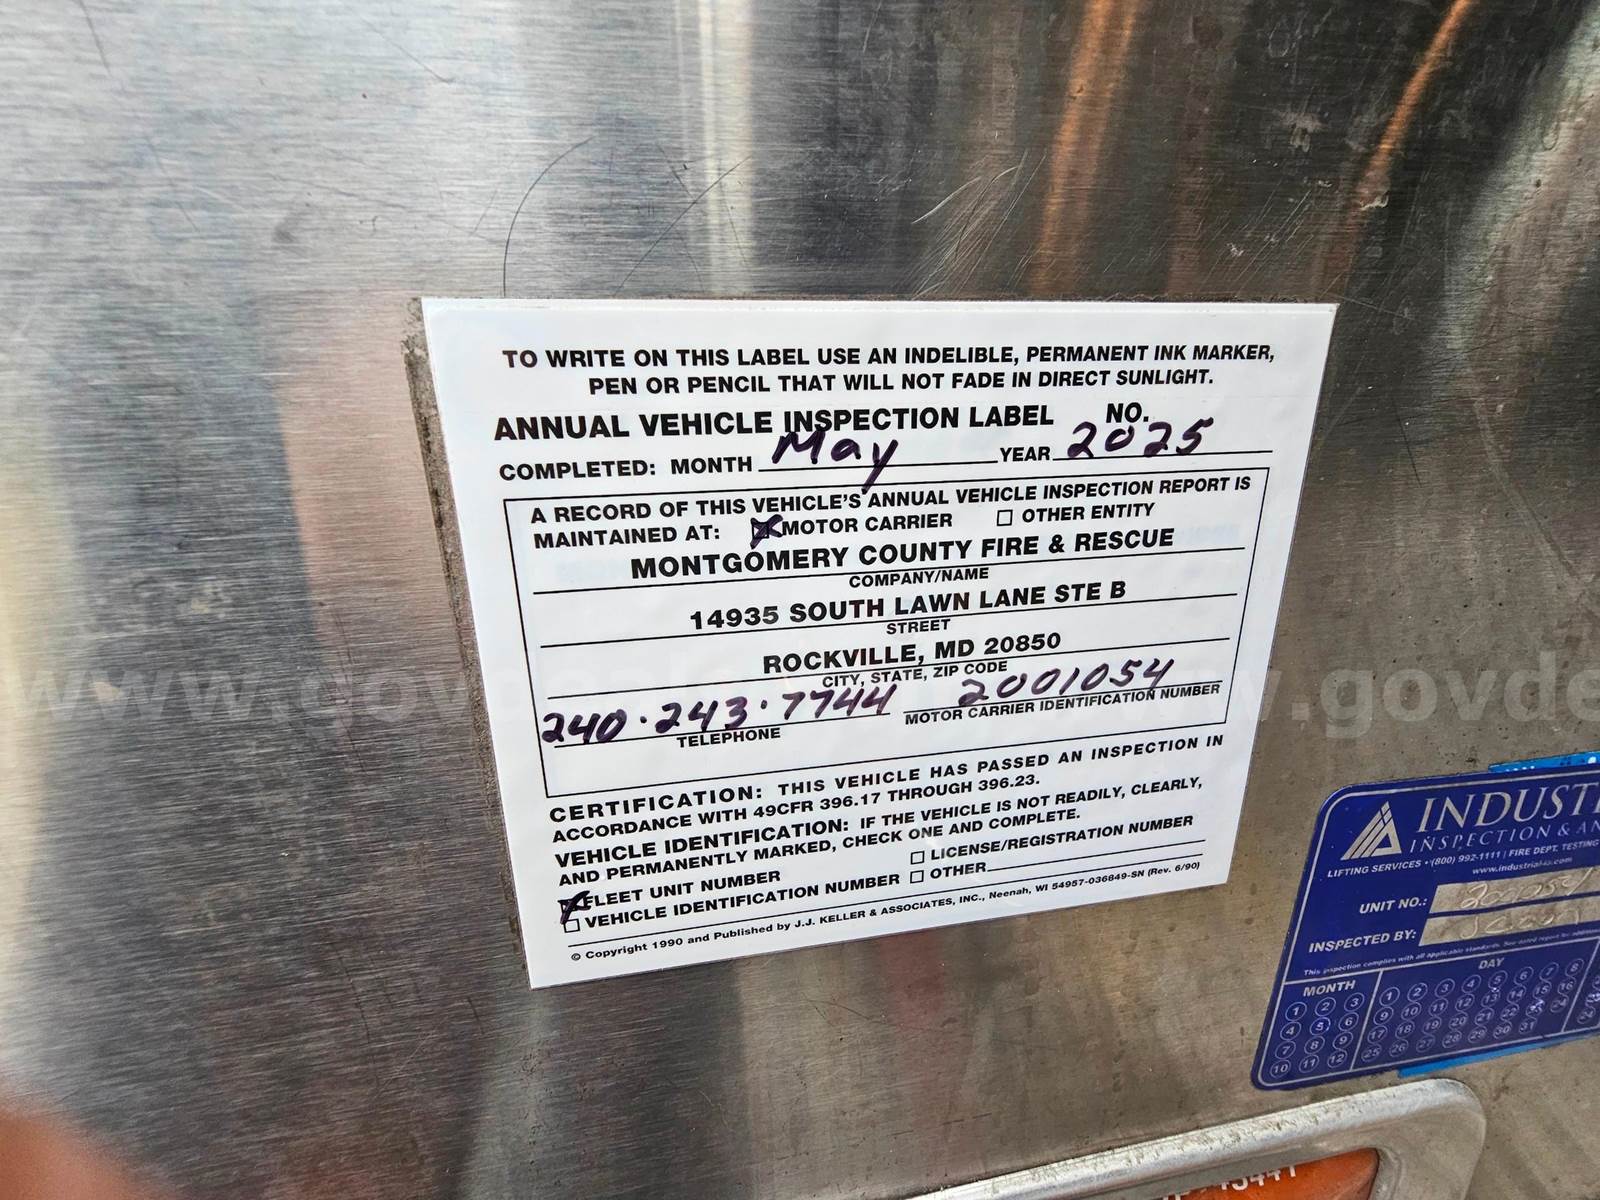 TO WRITE ON THIS LABEL USE AN INDELIBLE, PERMANENT INK MARKER,
PEN OR PENCIL THAT WILL NOT FADE IN DIRECT SUNLIGHT.
ANNUAL VEHICLE INSPECTION LABEL NO.
COMPLETED: MONTH May YEAR 2025
A RECORD OF THIS VEHICLE'S ANNUAL VEHICLE INSPECTION REPORT IS
MAINTAINED AT: MOTOR CARRIER OTHER ENTITY
MONTGOMERY COUNTY FIRE & RESCUE
COMPANY/NAME
14935 SOUTH LAWN LANE STE B
STREET
ROCKVILLE, MD 20850
CITY, STATE, ZIP CODE
240.243.7744 2001054
TELEPHONE MOTOR CARRIER IDENTIFICATION NUMBER
CERTIFICATION: THIS VEHICLE HAS PASSED AN INSPECTION IN
ACCORDANCE WITH 49CFR 396.17 THROUGH 396.23.
VEHICLE IDENTIFICATION: IF THE VEHICLE IS NOT READILY, CLEARLY,
AND PERMANENTLY MARKED, CHECK ONE AND COMPLETE.
FLEET UNIT NUMBER LICENSE/REGISTRATION NUMBER
VEHICLE IDENTIFICATION NUMBER OTHER
© Copyright 1990 and Published by J.J. KELLER & ASSOCIATES, INC., Neenah, WI 54957-036849-SN (Rev. 6/90)
INDUST
INSPECTION & AN
LIFTING SERVICES • (800) 992-1111 | FIRE DEPT. TESTING
UNIT NO.: 2001054
INSPECTED BY:
This inspection complies with all applicable standards. See dated report for
MONTH DAY
1 2 3 1 2 3 4 5 6 7 8
4 5 6 9 10 11 12 13 14 15 16
7 8 9 17 18 19 20 21 22 24
10 11 12 25 26 27 28 29 30 31
www.govde
www.govde